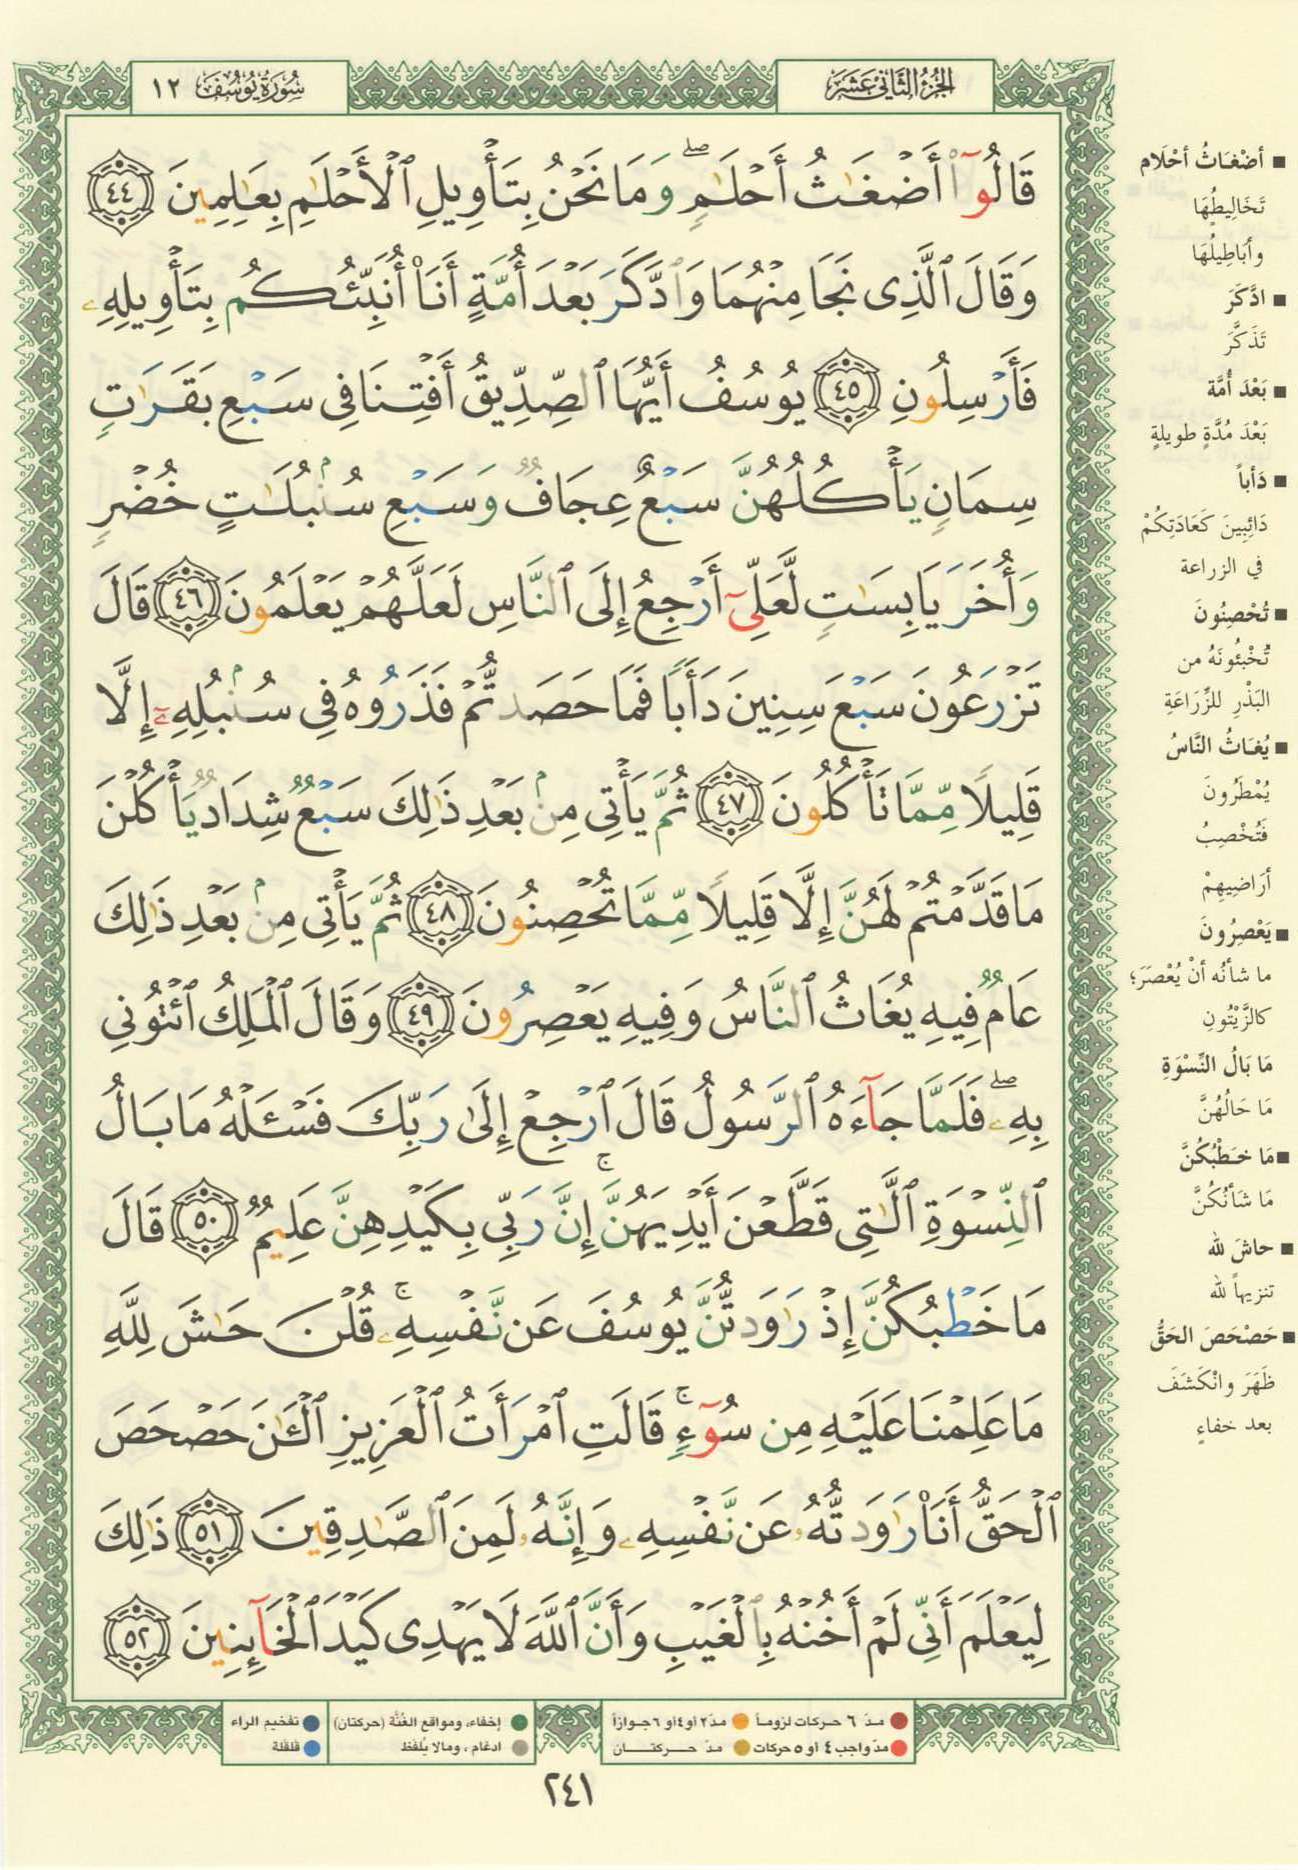 الجُزءُ الثَّانِي عَشَرَ
سُورَةُ يُوسُفَ ١٢
قَالُوٓا۟ أَضْغَـٰثُ أَحْلَـٰمٍۢ ۖ وَمَا نَحْنُ بِتَأْوِيلِ ٱلْأَحْلَـٰمِ بِعَـٰلِمِينَ ٤٤
وَقَالَ ٱلَّذِى نَجَا مِنْهُمَا وَٱدَّكَرَ بَعْدَ أُمَّةٍ أَنَا۠ أُنَبِّئُكُم بِتَأْوِيلِهِۦ
فَأَرْسِلُونِ ٤٥ يُوسُفُ أَيُّهَا ٱلصِّدِّيقُ أَفْتِنَا فِى سَبْعِ بَقَرَٰتٍۢ
سِمَانٍۢ يَأْكُلُهُنَّ سَبْعٌ عِجَافٌۭ وَسَبْعِ سُنۢبُلَـٰتٍ خُضْرٍۢ
وَأُخَرَ يَابِسَـٰتٍۢ لَّعَلِّىٓ أَرْجِعُ إِلَى ٱلنَّاسِ لَعَلَّهُمْ يَعْلَمُونَ ٤٦ قَالَ
تَزْرَعُونَ سَبْعَ سِنِينَ دَأَبًۭا فَمَا حَصَدتُّمْ فَذَرُوهُ فِى سُنۢبُلِهِۦٓ إِلَّا
قَلِيلًۭا مِّمَّا تَأْكُلُونَ ٤٧ ثُمَّ يَأْتِى مِنۢ بَعْدِ ذَٰلِكَ سَبْعٌۭ شِدَادٌۭ يَأْكُلْنَ
مَا قَدَّمْتُمْ لَهُنَّ إِلَّا قَلِيلًۭا مِّمَّا تُحْصِنُونَ ٤٨ ثُمَّ يَأْتِى مِنۢ بَعْدِ ذَٰلِكَ
عَامٌۭ فِيهِ يُغَاثُ ٱلنَّاسُ وَفِيهِ يَعْصِرُونَ ٤٩ وَقَالَ ٱلْمَلِكُ ٱئْتُونِى
بِهِۦ ۖ فَلَمَّا جَآءَهُ ٱلرَّسُولُ قَالَ ٱرْجِعْ إِلَىٰ رَبِّكَ فَسْـَٔلْهُ مَا بَالُ
ٱلنِّسْوَةِ ٱلَّـٰتِى قَطَّعْنَ أَيْدِيَهُنَّ ۚ إِنَّ رَبِّى بِكَيْدِهِنَّ عَلِيمٌۭ ٥٠ قَالَ
مَا خَطْبُكُنَّ إِذْ رَٰوَدتُّنَّ يُوسُفَ عَن نَّفْسِهِۦ ۚ قُلْنَ حَـٰشَ لِلَّهِ
مَا عَلِمْنَا عَلَيْهِ مِن سُوٓءٍۢ ۚ قَالَتِ ٱمْرَأَتُ ٱلْعَزِيزِ ٱلْـَٔـٰنَ حَصْحَصَ
ٱلْحَقُّ أَنَا۠ رَٰوَدتُّهُۥ عَن نَّفْسِهِۦ وَإِنَّهُۥ لَمِنَ ٱلصَّـٰدِقِينَ ٥١ ذَٰلِكَ
لِيَعْلَمَ أَنِّى لَمْ أَخُنْهُ بِٱلْغَيْبِ وَأَنَّ ٱللَّهَ لَا يَهْدِى كَيْدَ ٱلْخَآئِنِينَ ٥٢
■ أضْغَاثُ أحْلَام
تَخَالِيطُهَا
وأبَاطِيلُهَا
■ ادَّكَرَ
تَذَكَّرَ
■ بَعْدَ أُمَّة
بَعْدَ مُدَّةٍ طويلةٍ
■ دَأباً
دَائِبِينَ كَعَادَتِكُمْ
في الزراعة
■ تُحْصِنُونَ
تُخْبئُونَهُ من
البَذْرِ للزِّرَاعَةِ
■ يُغَاثُ النَّاسُ
يُمْطَرُونَ
فَتُخْصِبُ
أرَاضِيهِمْ
■ يَعْصِرُونَ
ما شأنُه أنْ يُعْصَرَ؛
كالزَّيْتُونِ
مَا بَالُ النِّسْوَةِ
مَا حَالُهُنَّ
■ مَا خَطْبُكُنَّ
مَا شَأنُكُنَّ
■ حاشَ لله
تنزيهاً لله
■ حَصْحَصَ الحَقُّ
ظَهَرَ وانْكَشَفَ
بعد خفاءٍ
مدّ ٦ حركات لزوماً مدّ ٢ أو ٤ أو ٦ جوازاً
مدّ واجب ٤ أو ٥ حركات مدّ حركتان
إخفاء، ومواقع الغُنَّة (حركتان) تفخيم الراء
ادغام، ومالا يُلفظ قلقلة
٢٤١